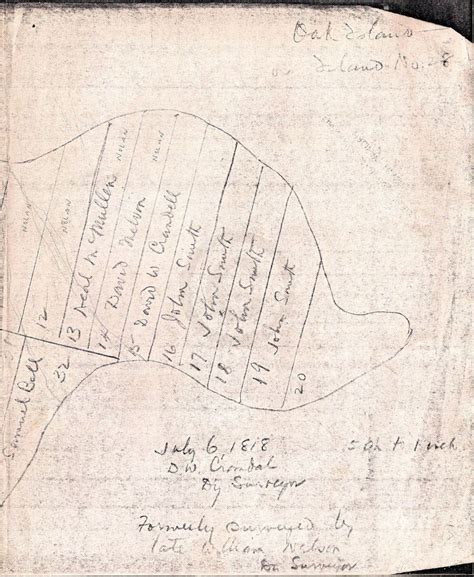 Oak Island
or Island No. 28
NELAN
12
NELAN
13 Neal McMullen
NELAN
14 David Nelson
NELAN
15 David W Crandell
16 John Smith
17 John Smith
18 John Smith
19 John Smith
20
32
Samuel Ball
July 6, 1818
5 Ch t 1 inch.
D. W. Crandal
Dy Surveyor
Formerly Surveyed by
late William Nelson
Du Surveyor